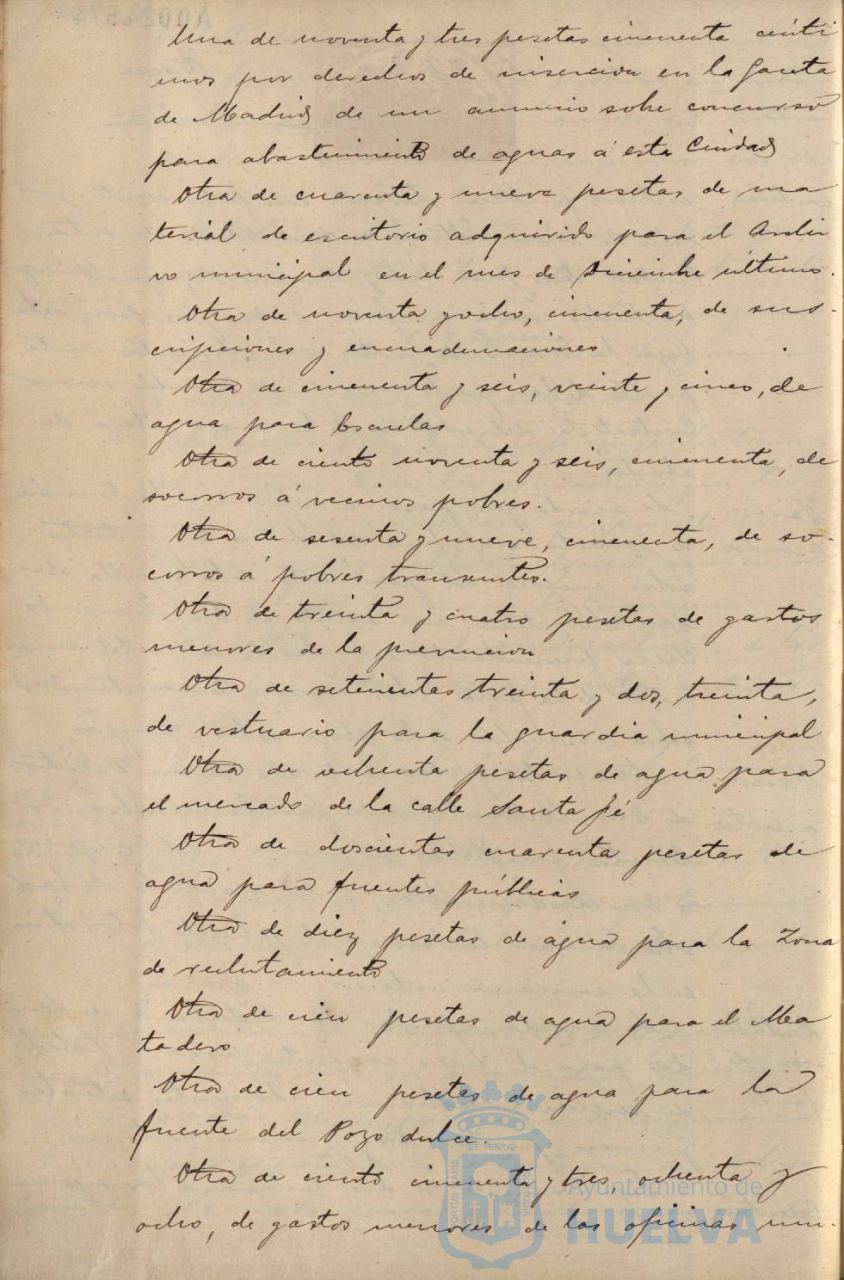 Una de noventa y tres pesetas cincuenta cénti
mos por derechos de inserción en la Gaceta
de Madrid de un anuncio sobre concurso
para abastecimiento de aguas á esta Ciudad
Otra de cuarenta y nueve pesetas de ma
terial de escritorio adquirido para el Archi
vo municipal en el mes de Diciembre último.
Otra de noventa y ocho, cincuenta, de sus-
cripciones y encuadernaciones
Otra de cincuenta y seis, veinte y cinco, de
agua para Escuelas
Otra de ciento noventa y seis, cincuenta, de
socorros á vecinos pobres.
Otra de sesenta y nueve, cincuenta, de so-
corros á pobres transeuntes.
Otra de treinta y cuatro pesetas de gastos
menores de la prevención
Otra de setecientas treinta y dos, treinta,
de vestuario para la guardia municipal
Otra de ochenta pesetas de agua para
el mercado de la calle Santa Fé
Otra de doscientas cuarenta pesetas de
agua para fuentes públicas
Otra de diez pesetas de agua para la Zona
de reclutamiento
Otra de cien pesetas de agua para el Ma
tadero
Otra de cien pesetas de agua para la
fuente del Pozo dulce.
Otra de ciento cincuenta y tres, ochenta y
ocho, de gastos menores de las oficinas mu-
Ayuntamiento de
HUELVA